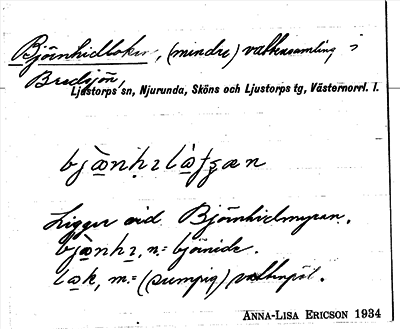 Björnhidloken, (mindre) vattensamling i
Bredsjön,
Ljustorps sn, Njurunda, Sköns och Ljustorps tg, Västernorrl. l.
Ligger vid Björnhidmyran.
n. = björnide.
m. = (sumpig) vattenpöl.
ANNA-LISA ERICSON 1934